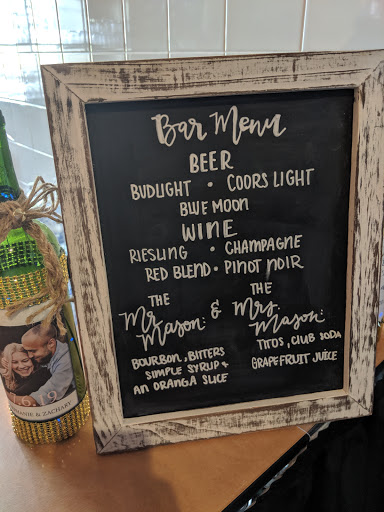 Bar Menu
BEER
BUDLIGHT • COORS LIGHT
BLUE MOON
WINE
RIESLING • CHAMPAGNE
RED BLEND • PINOT NOIR
THE Mr. Mason: & THE Mrs. Mason:
BOURBON, BITTERS
SIMPLE SYRUP +
AN ORANGA SLICE
TITOS, CLUB SODA
GRAPEFRUIT JUICE
& ZACHARY